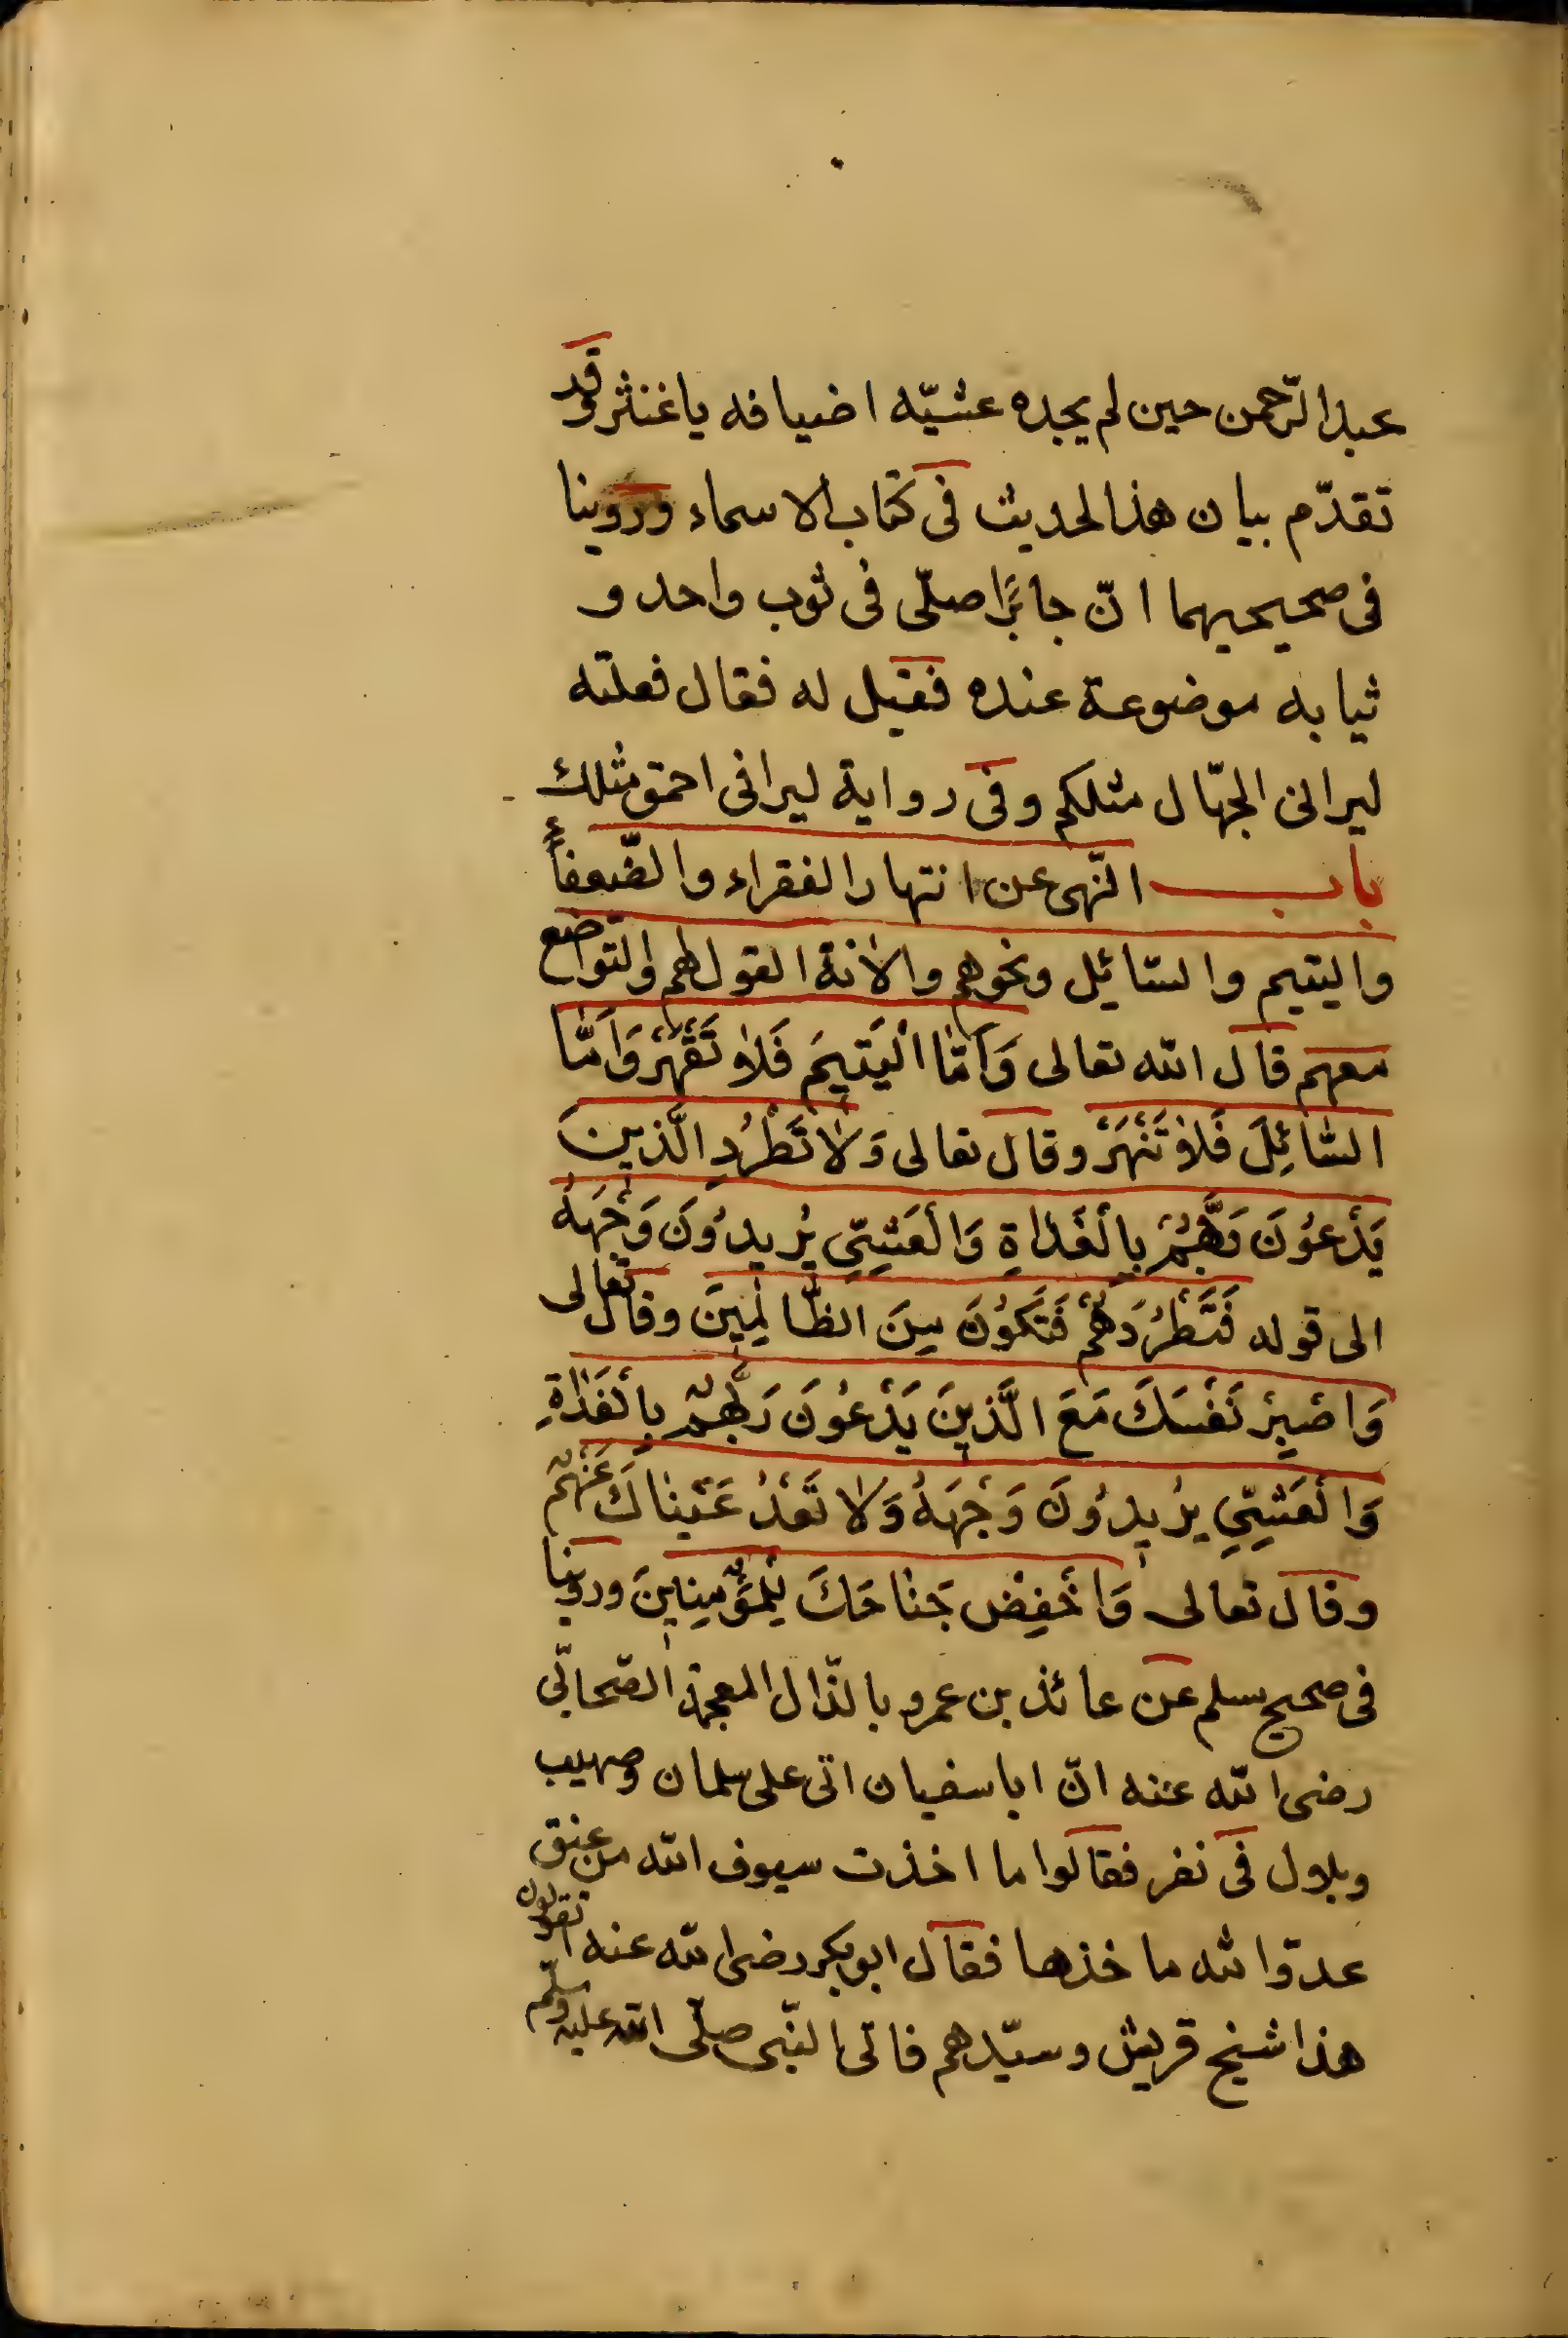 عبد الرّحمن حين لم يجده عشيّه اضيافه ياغنثر وقد
تقدّم بيان هذا لحديث فى كتاب الاسماء وروينا
فى صحيحيهما انّ جابرًا صلّى فى ثوب واحد و
ثيابه موضوعة عنده فقيل له فقال فعلته
ليرانى الجهّال مثلكم وفى رواية ليرانى احمق مثلك
باب النّهى عن انتهار الفقراء والضّعفاء
واليتيم والسّائل ونحوهم والانة القول لهم والتواضع
معهم قال الله تعالى وَاَمَّا الْيَتِيمَ فَلَا تَقْهَرْ وَاَمَّا
السَّائِلَ فَلَا تَنْهَرْ وقال تعالى وَلَا تَطْرُدِ الَّذِينَ
يَدْعُونَ رَبَّهُمْ بِالْغَدَاةِ وَالْعَشِيِّ يُرِيدُونَ وَجْهَهُ
الى قوله فَتَطْرُدَهُمْ فَتَكُونَ مِنَ الظَّالِمِينَ وقال تعالى
وَاصْبِرْ نَفْسَكَ مَعَ الَّذِينَ يَدْعُونَ رَبَّهُمْ بِالْغَدَاةِ
وَالْعَشِيِّ يُرِيدُونَ وَجْهَهُ وَلَا تَعْدُ عَيْنَاكَ عَنْهُمْ
وقال تعالى وَاخْفِضْ جَنَاحَكَ لِلْمُؤْمِنِينَ وروينا
فى صحيح مسلم عن عائذ بن عمرو بالذّال المعجمة الصّحابّى
رضى الله عنه انّ اباسفيان اتى على سلمان وصهيب
وبلال فى نفر فقالوا ما اخذت سيوف الله من عنق
عدوّ الله ماخذها فقال ابوبكر رضى الله عنه اتقولون
هذا شيخ قريش وسيّدهم فاتى النّبى صلّى الله عليه وسلّم